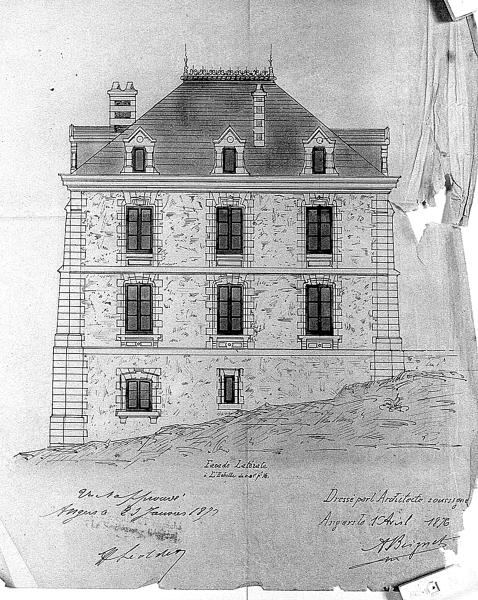 Façade Latérale
à L'Echelle de 0.01 p. M.
Vu et approuvé
Angers le 23 Janvier 1877
Dressé par l'Architecte soussigné
Angers le 1er Avril 1876
A Beignet